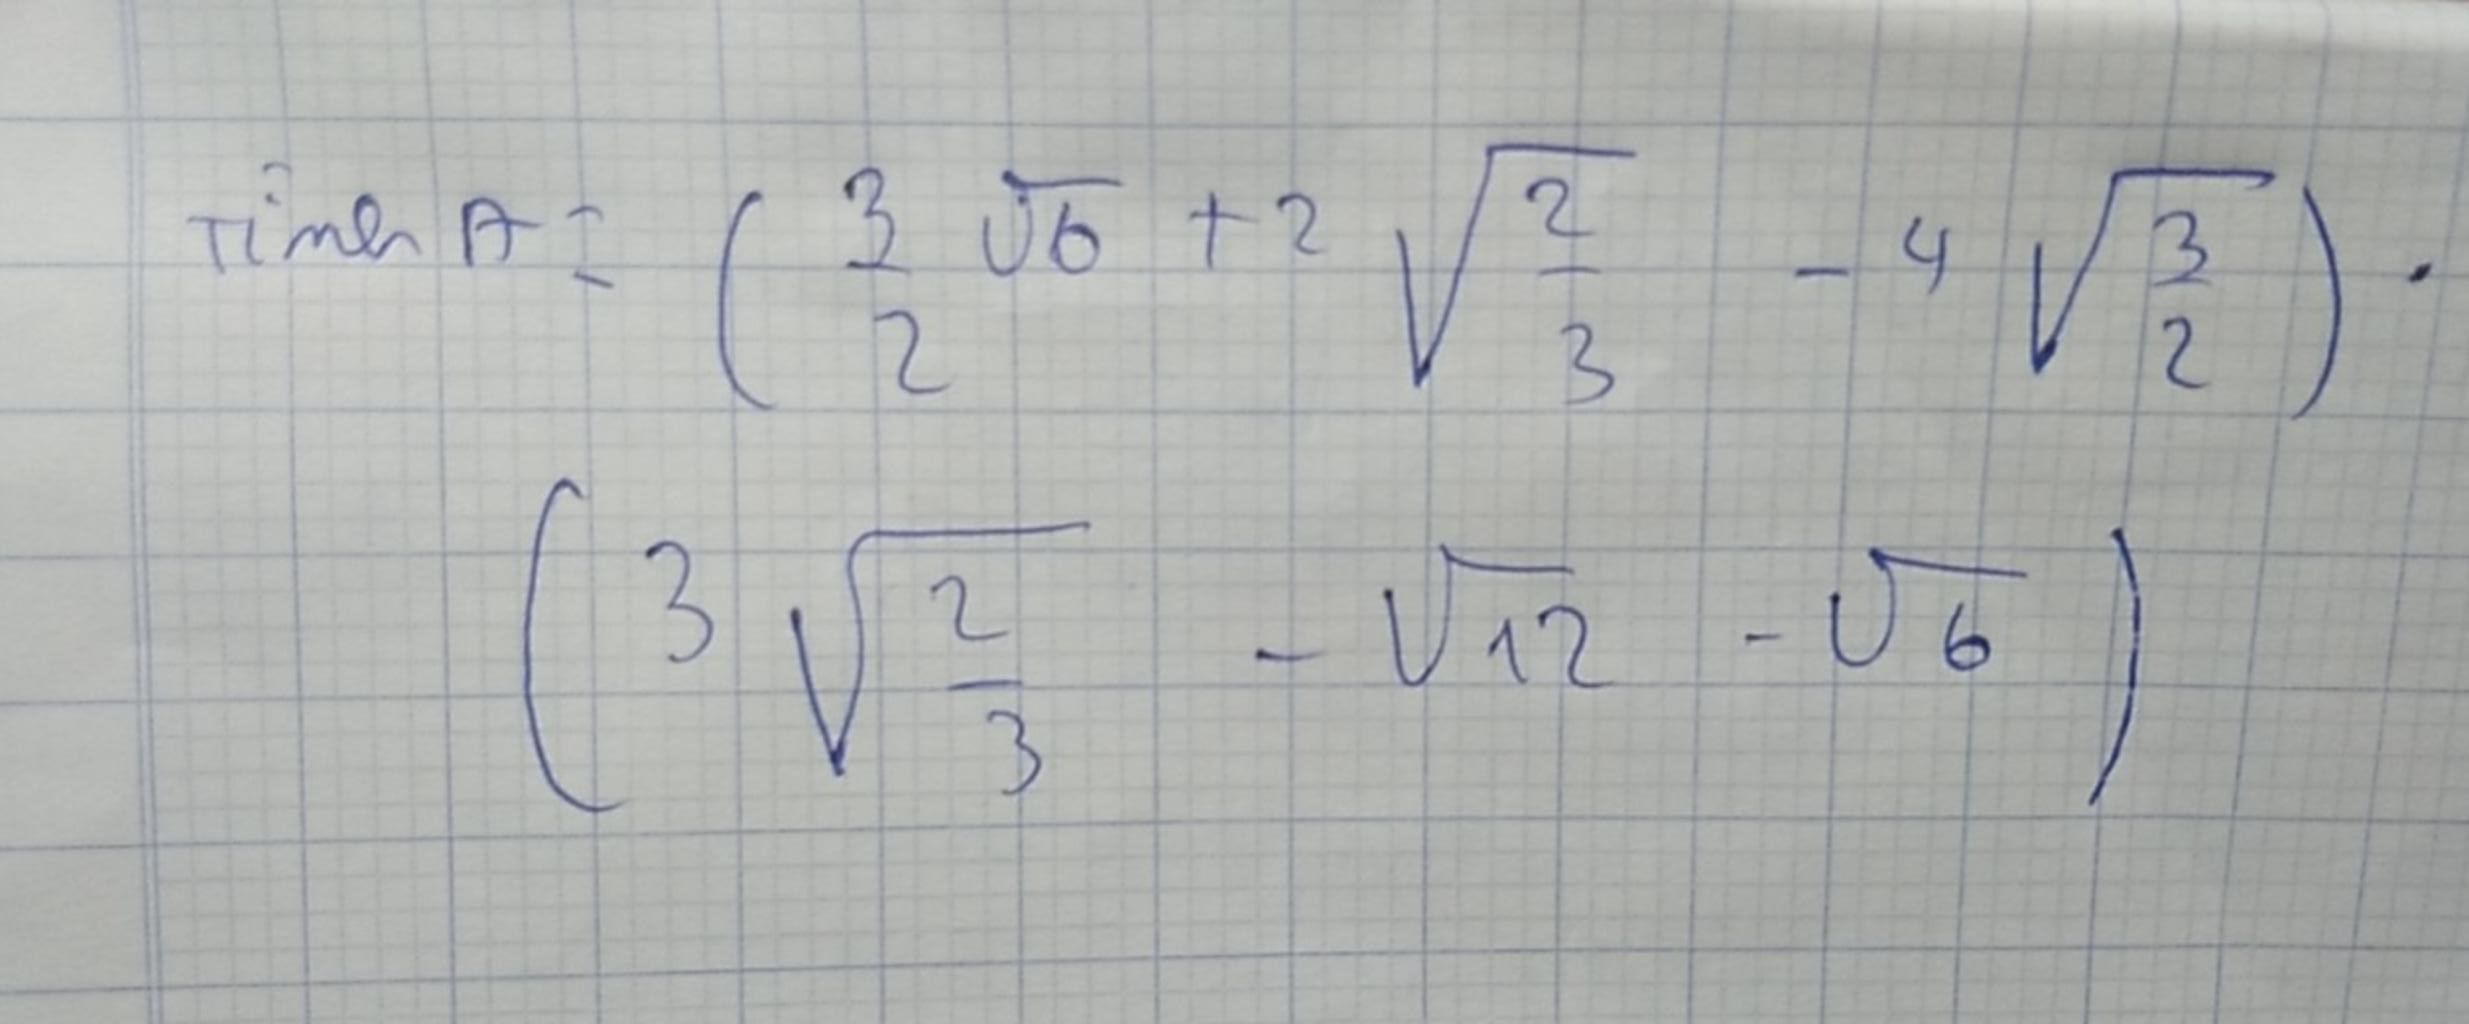 Tính A = ( 3/2 √6 + 2 √(2/3) - 4 √(3/2) ) .
( 3 √(2/3) - √12 - √6 )